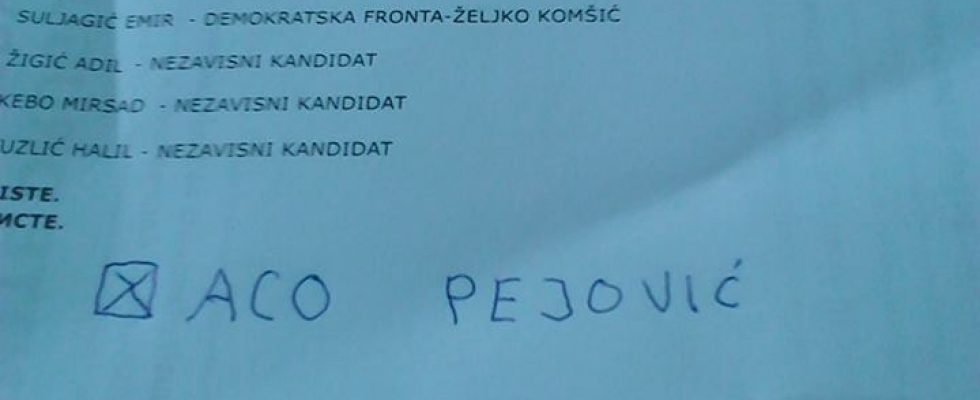 SULJAGIĆ EMIR - DEMOKRATSKA FRONTA-ŽELJKO KOMŠIĆ
ŽIGIĆ ADIL - NEZAVISNI KANDIDAT
KEBO MIRSAD - NEZAVISNI KANDIDAT
UZLIĆ HALIL - NEZAVISNI KANDIDAT
ISTE.
ИСТЕ.
ACO PEJOVIĆ